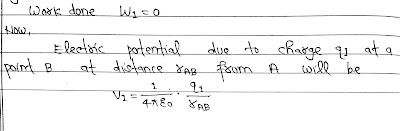 Work done W₁ = 0
Now,
Electric potential due to charge q₁ at a
point B at distance r_AB from A will be
V₂ = 1/4πε₀ · q₁/r_AB